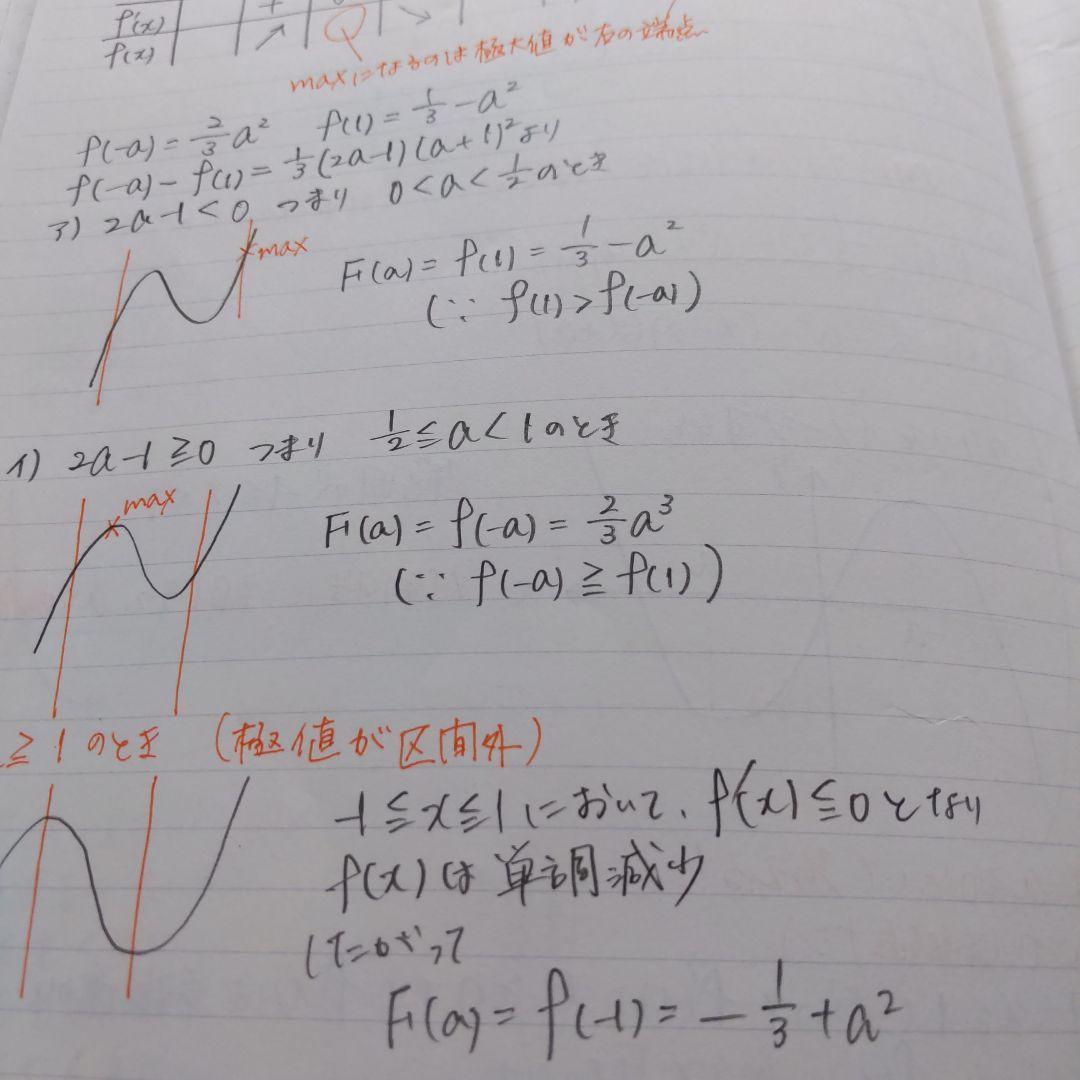 f'(x) + 0
f(x) ↗ ↘
maxになるのは極大値が右の端点
f(-a) = 2/3 a² f(1) = 1/3 - a²
f(-a) - f(1) = 1/3 (2a-1)(a+1)² より
ア) 2a-1<0 つまり 0<a<1/2 のとき
max
F(a) = f(1) = 1/3 - a²
(∵ f(1)>f(-a))
イ) 2a-1≧0 つまり 1/2≦a<1のとき
max
F(a) = f(-a) = 2/3 a³
(∵ f(-a)≧f(1))
≧1のとき (極値が区間外)
-1≦x≦1において、f'(x)≦0となり
f(x)は単調減少
したがって
F(a) = f(-1) = -1/3 + a²